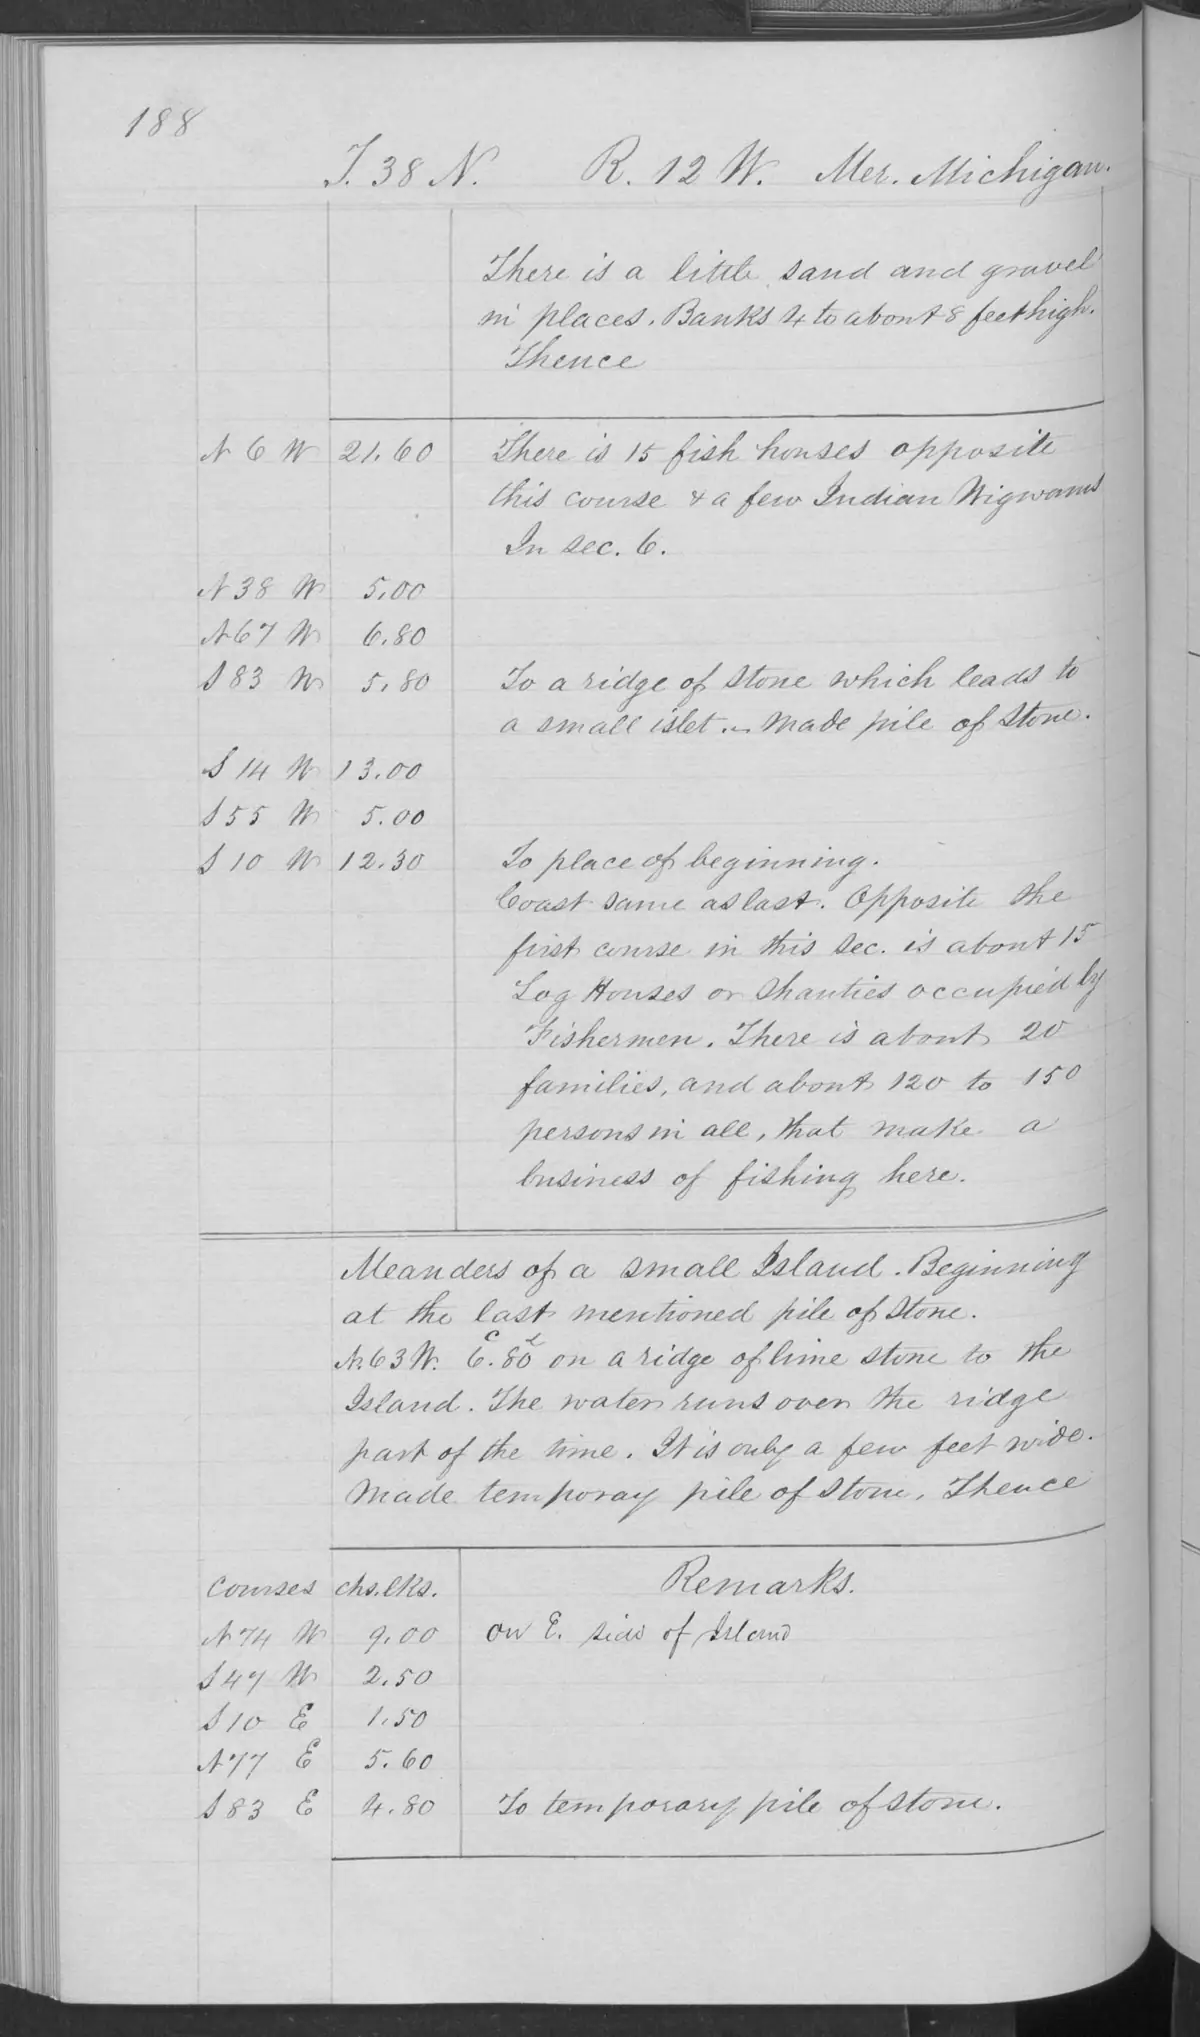 188
T. 38 N. R. 12 W. Mer. Michigan.
There is a little sand and gravel
in places. Banks 4 to about 8 feet high.
Thence
N 6 W 21.60 There is 15 fish houses opposite
this course & a few Indian Wigwams
In sec. 6.
N 38 W 5.00
N 67 W 6.80
S 83 W 5.80 To a ridge of Stone which leads to
a small islet. Made pile of Stone.
S 14 W 13.00
S 55 W 5.00
S 10 W 12.30 To place of beginning.
Coast same as last. Opposite the
first course in this sec. is about 15
Log Houses or Shanties occupied by
Fishermen. There is about 20
families, and about 120 to 150
persons in all, that make a
business of fishing here.
Meanders of a small Island. Beginning
at the last mentioned pile of Stone.
N. 63 W. 6.c 80l on a ridge of lime stone to the
Island. The water runs over the ridge
part of the time. It is only a few feet wide.
Made temporay pile of Stone. Thence
Courses chs. lks. Remarks.
N 74 W 9.00 on E. side of Island
S 47 W 2.50
S 10 E 1.50
N 77 E 5.60
S 83 E 4.80 To temporary pile of Stone.